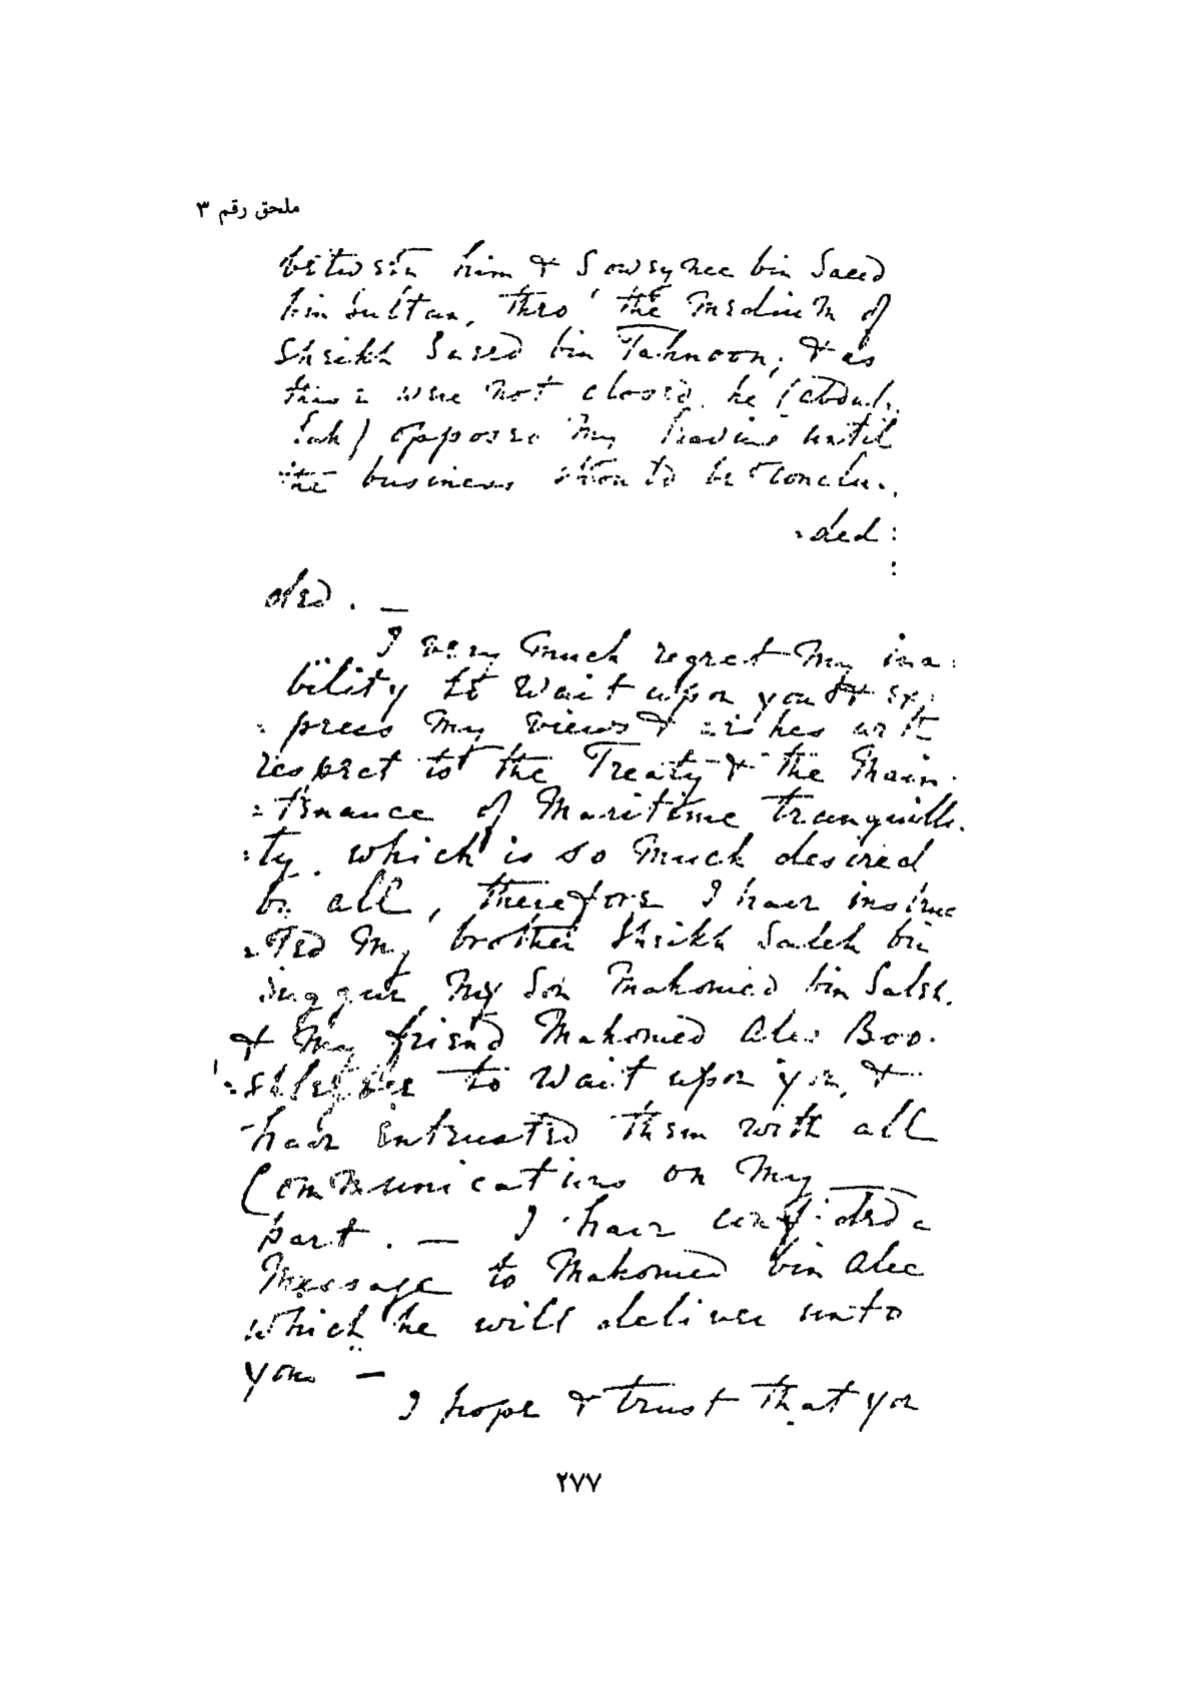 ملحق رقم ٣
between him & Sowsynee bin Saeed
bin Sultan, thro' the medium of
Sheikh Saeed bin Tahnoon, & as
this were not closed, he (Abdul-
lah) opposed my leaving until
the business to be conclu-
-ded
ded. —
I very much regret my ina-
bility to wait upon you & ex-
press my views & wishes with
respect to the Treaty & the Main-
=tenance of Maritime tranquilli-
=ty, which is so much desired
by all, therefore I have instruc
=ted my brother Sheikh Saleh bin
my Son Mahomed bin Saleh,
& my friend Mahomed Alee Boo-
to wait upon you, &
have entrusted them with all
Communications on my
part. — I have confided a
Message to Mahomed bin Alee
which he will deliver unto
you —
I hope & trust that you
٢٧٧